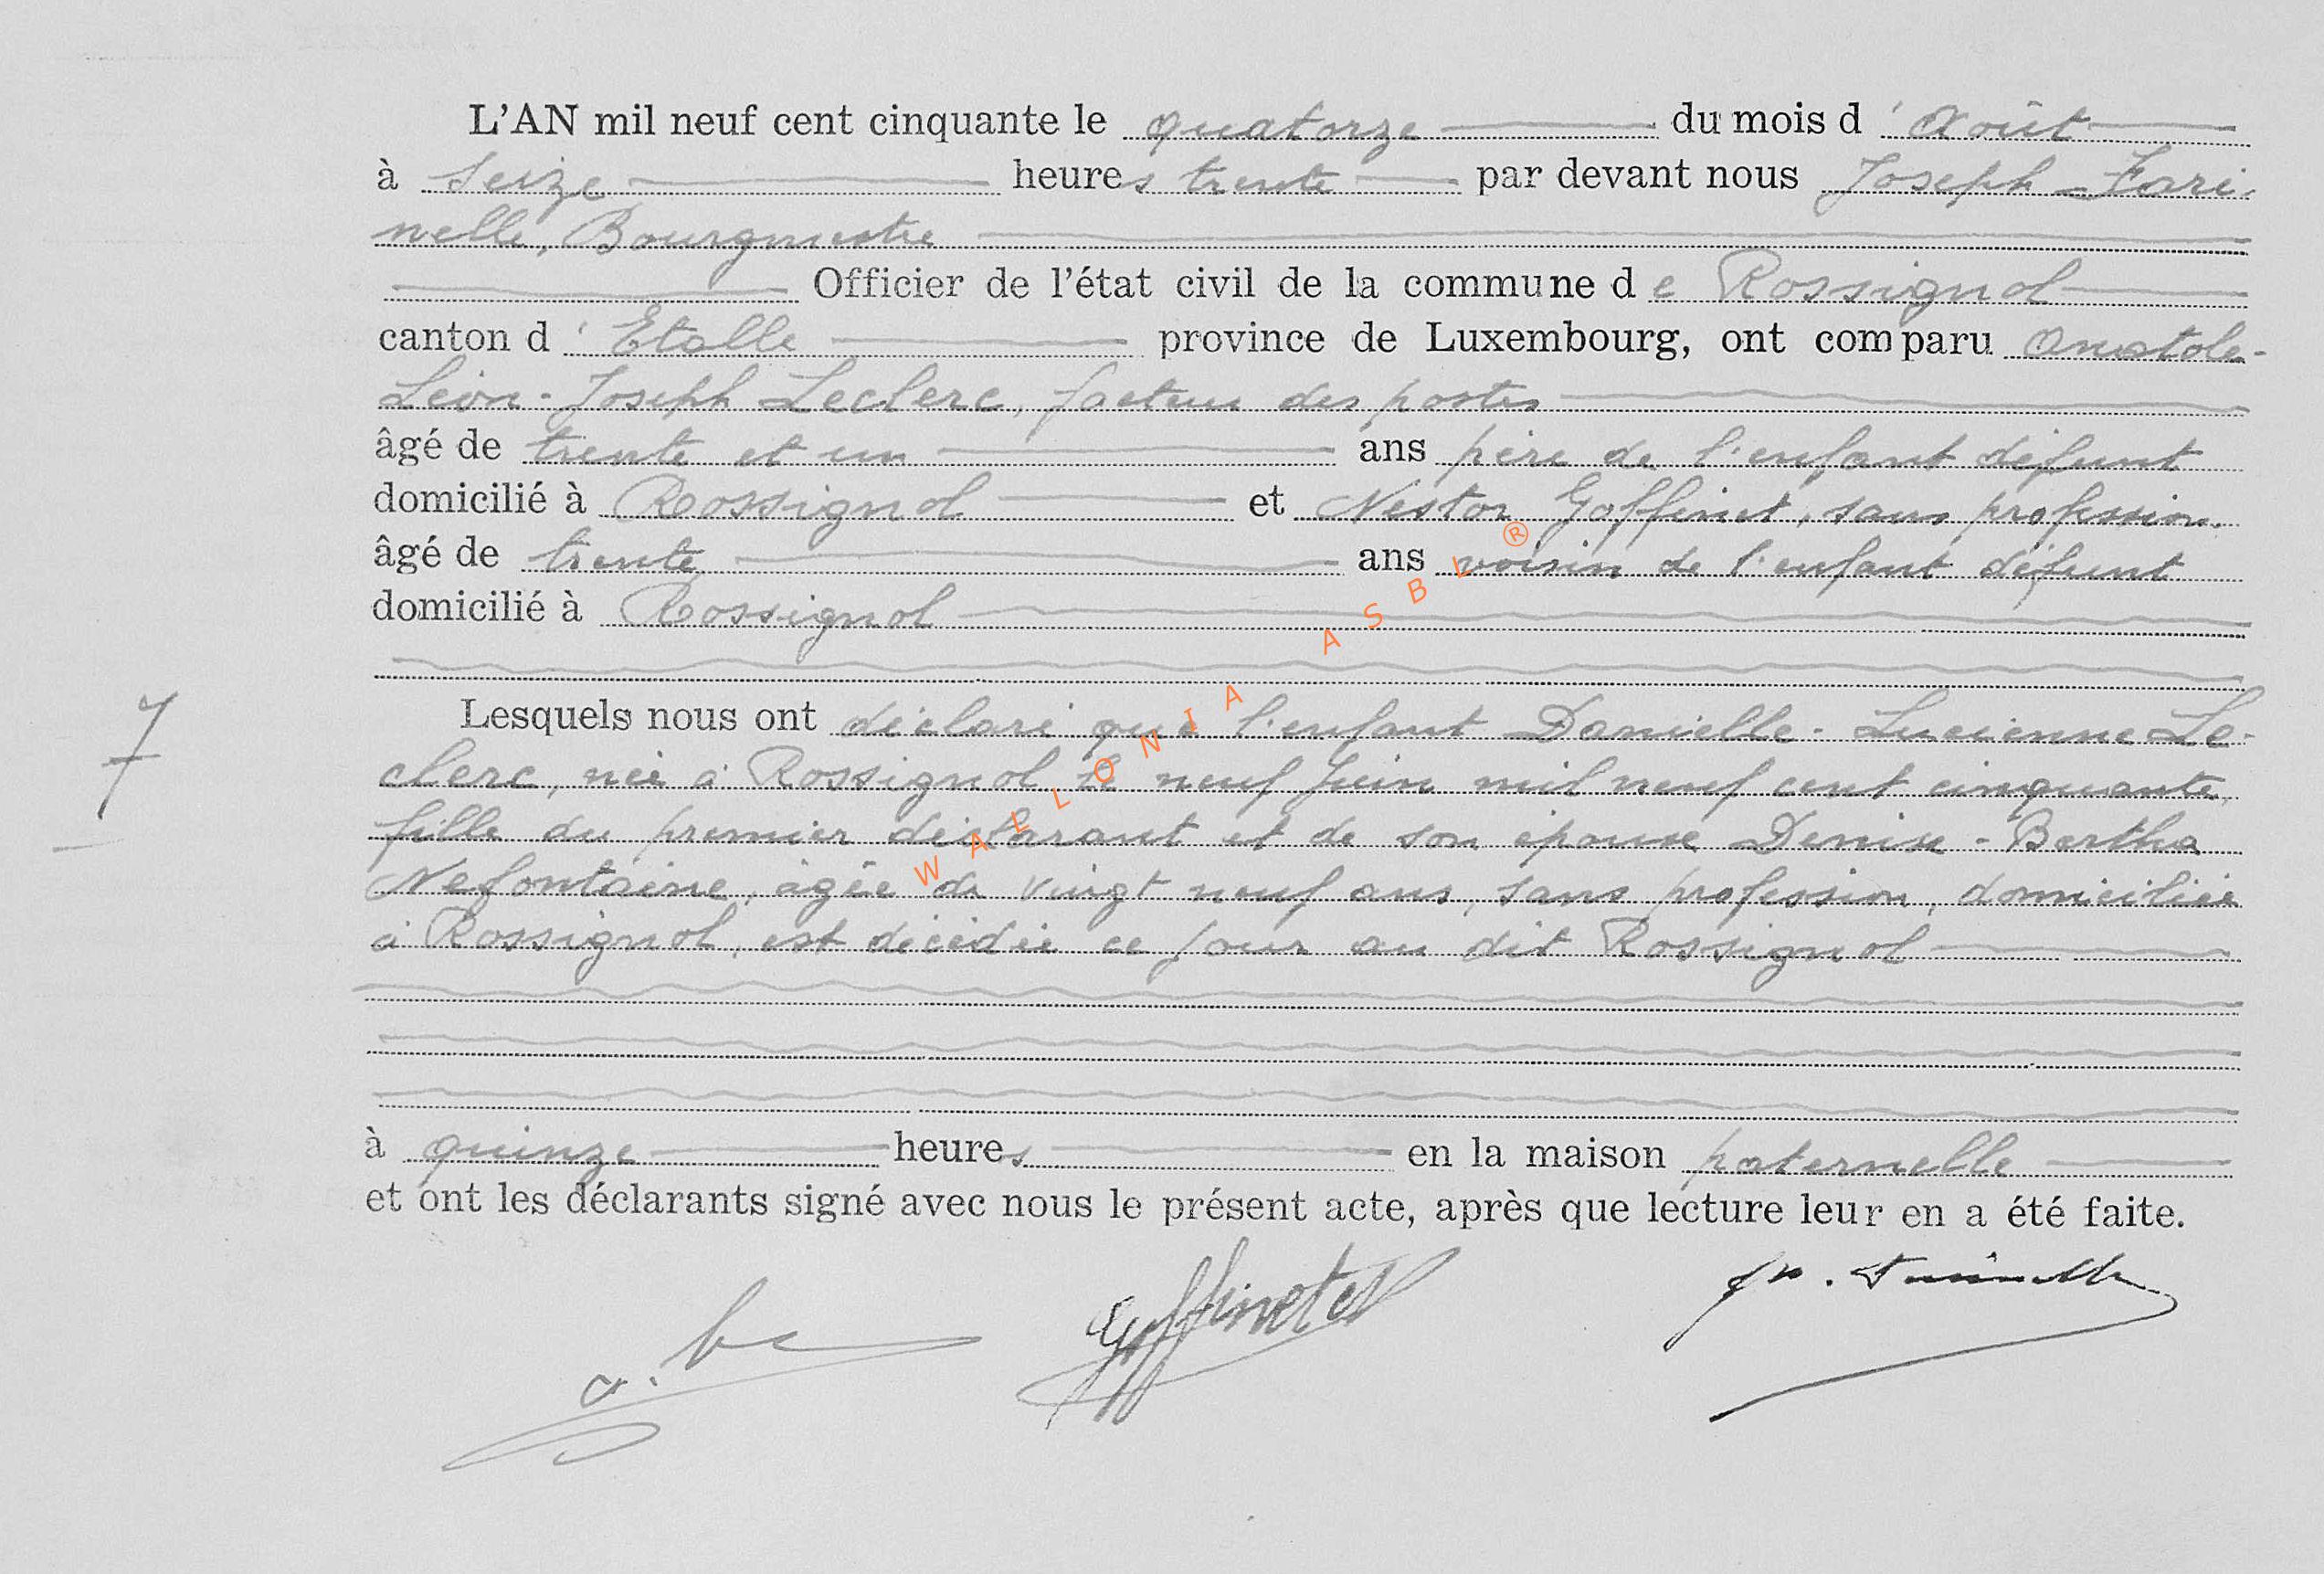 L'AN mil neuf cent cinquante le quatorze du mois d'Août
à seize heures trente par devant nous Joseph Fari-
nelle, Bourgmestre
Officier de l'état civil de la commune de Rossignol
canton d'Etalle province de Luxembourg, ont comparu Anatole-
Léon-Joseph Leclerc, facteur des postes
âgé de trente et un ans père de l'enfant défunt
domicilié à Rossignol et Nestor Goffinet, sans profession.
âgé de trente ans voisin de l'enfant défunt
domicilié à Rossignol
7
Lesquels nous ont déclaré que l'enfant Danielle-Lucienne Le-
clerc, née à Rossignol le neuf Juin mil neuf cent cinquante,
fille du premier déclarant et de son épouse Denise-Bertha
Nefontaine, âgée de vingt neuf ans, sans profession, domiciliée
à Rossignol, est décédée ce jour au dit Rossignol
à quinze heures en la maison paternelle
et ont les déclarants signé avec nous le présent acte, après que lecture leur en a été faite.
Goffinet
WALLONIA ASBL ®